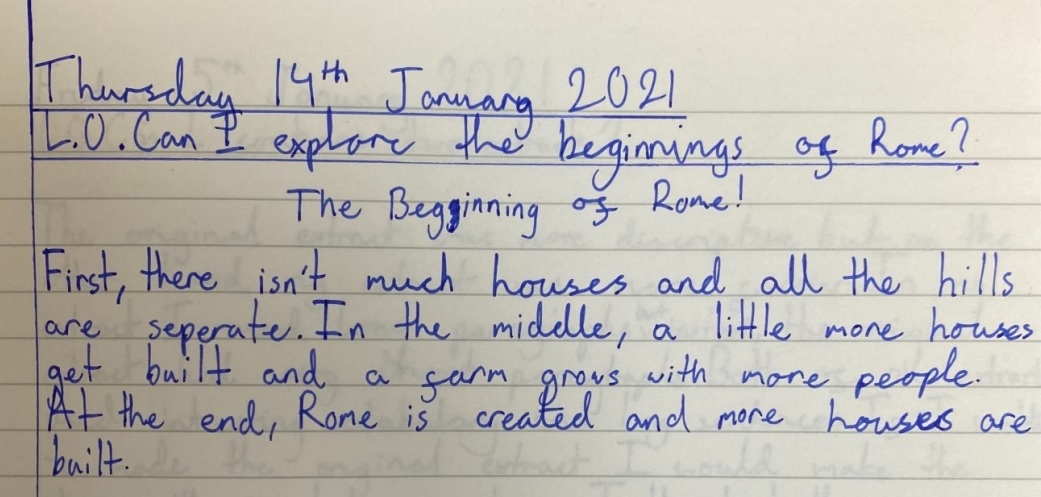 Thursday 14th January 2021
L.O. Can I explore the beginnings of Rome?
The Begginning of Rome!
First, there isn't much houses and all the hills
are seperate. In the middle, a little more houses
get built and a farm grows with more people.
At the end, Rome is created and more houses are
built.